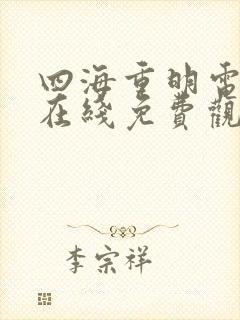 四海重明電
在綫免費觀
李宗祥